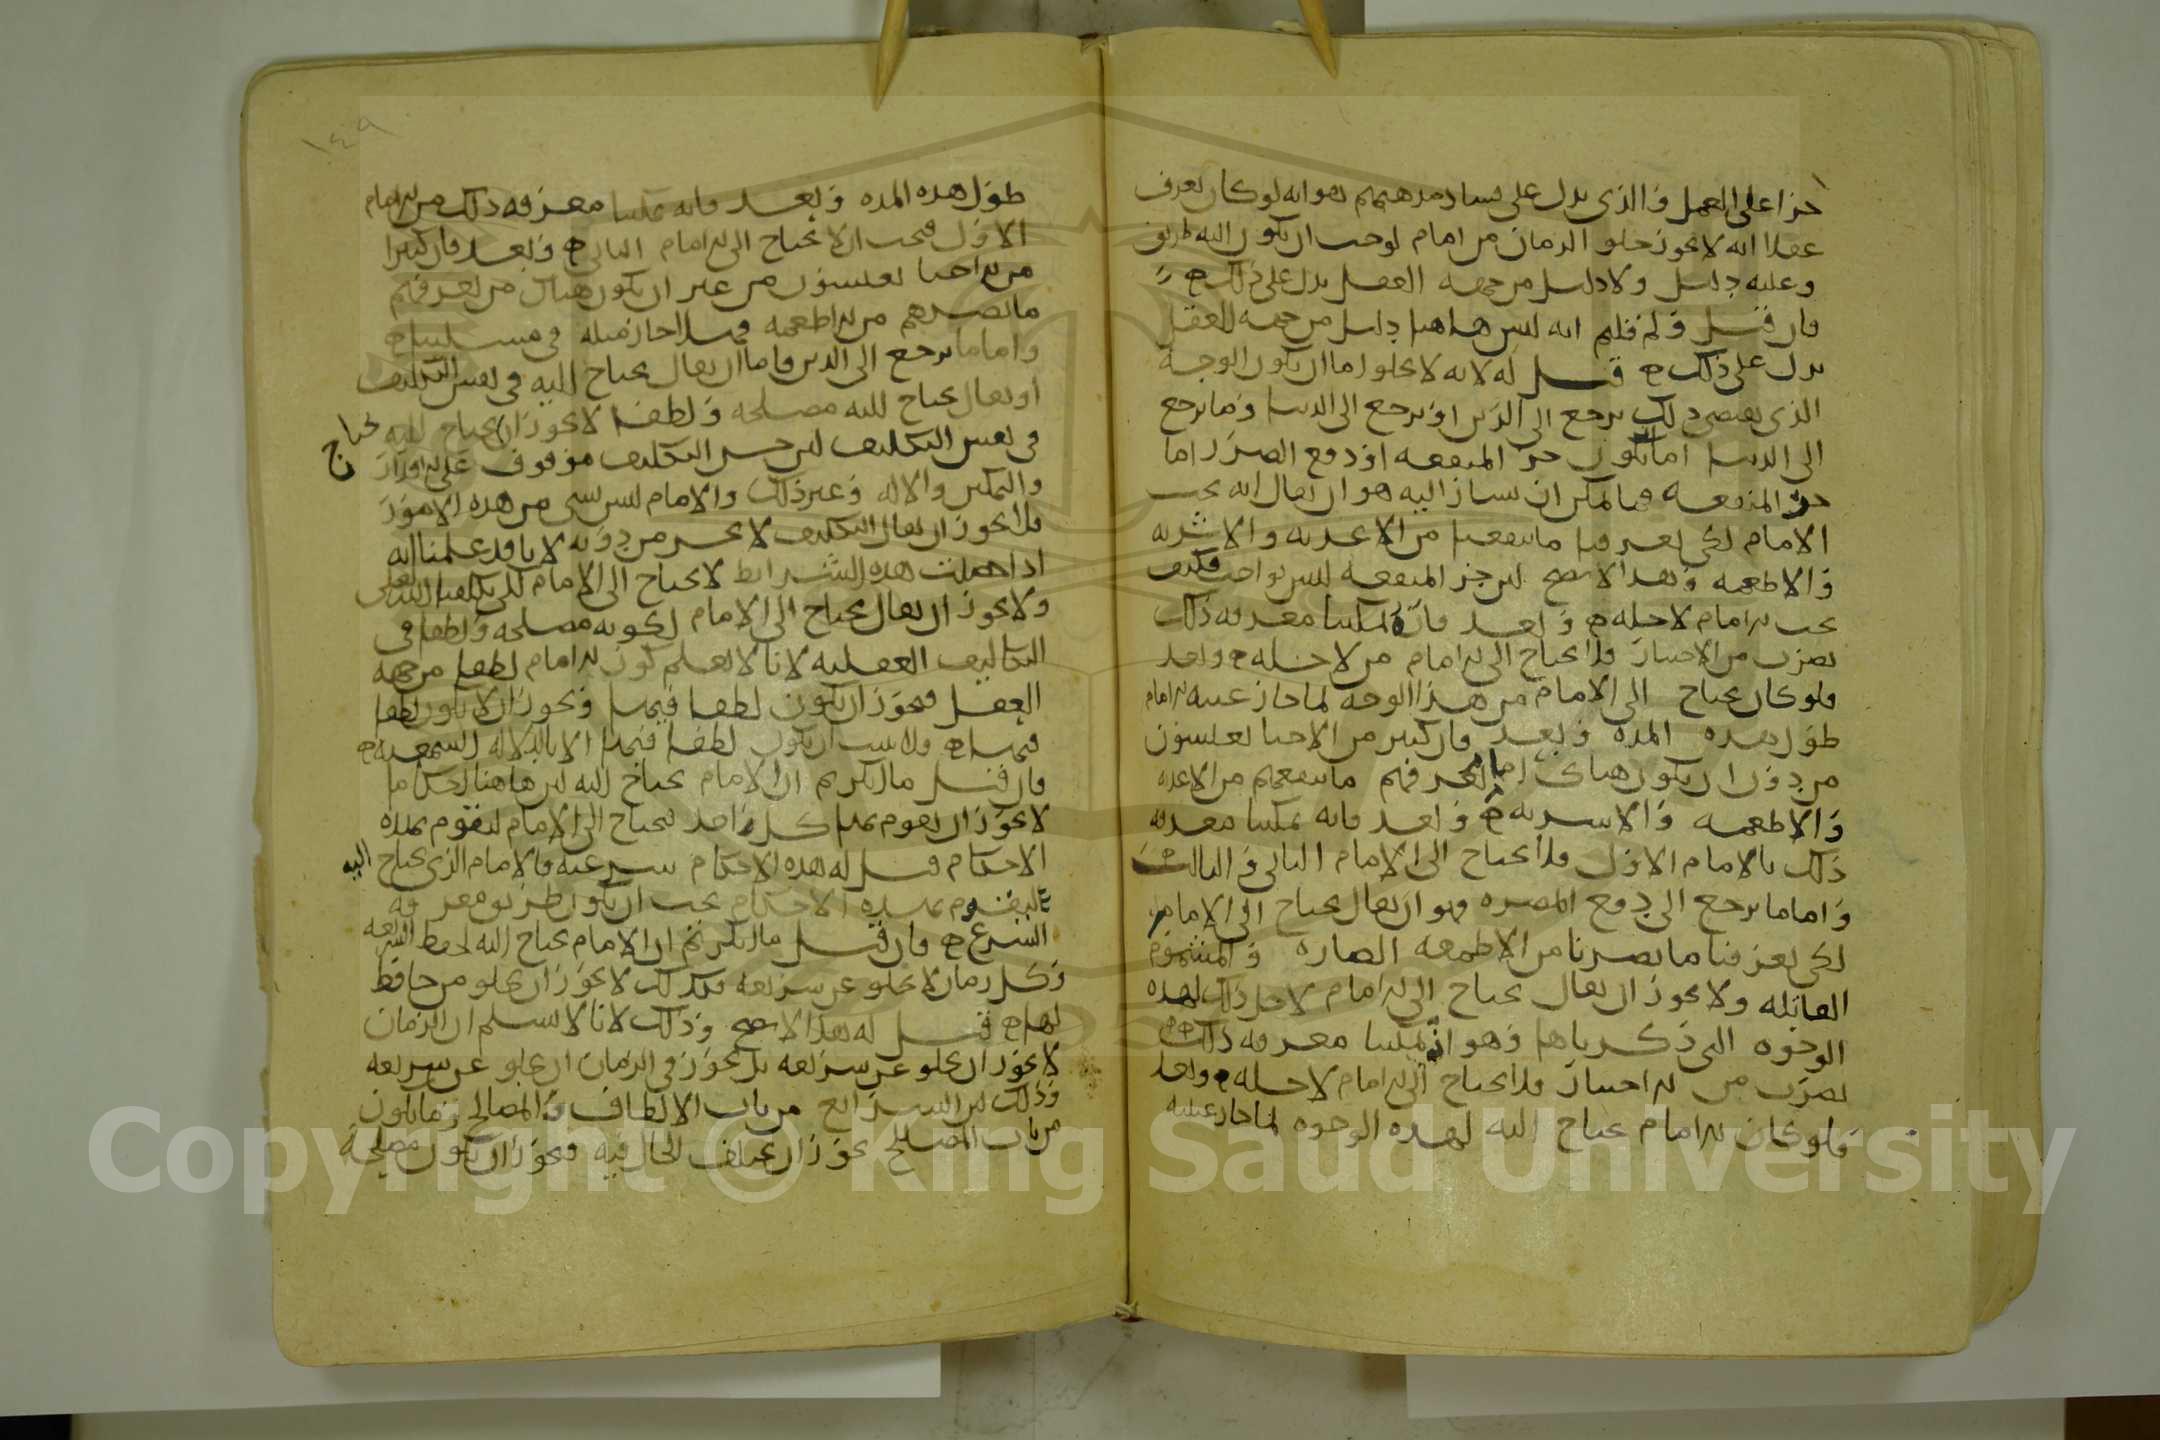 جزا على العمل والذي يدل على فساد مذهبهم هو انه لو كان يعرف
عقلا انه لا يجوز خلو الزمان من امام لوجب ان يكون اليه طريق
وعليه دليل ولا دليل من جهه العقل يدل على ذلك
فان قيل ولم قلتم انه ليس هاهنا دليل من جهه العقل
يدل على ذلك قيل له لانه لا يخلو اما ان يكون الوجه
الذي يقتضي ذلك يرجع الى الدين او يرجع الى الدنيا وما يرجع
الى الدنيا اما ان يكون جر المنفعه او دفع الضرر اما
جر المنفعه فما يمكن ان يشار اليه هو ان يقال انه يجب
الامام لكي يعرفنا ما ينفعنا من الاغذيه والاشربه
والاطعمه وهذا لا يصح لان جر المنفعه ليس بواجب فكيف
يجب الامام لاجله وبعد فانه يمكننا معرفه ذلك
بضرب من الاختبار فلا يحتاج الى الامام من لاجله وبعد
فلو كان يحتاج الى الامام من هذا الوجه لما جاز غيبه الامام
طول هذه المده وبعد فان كثير من الاحيا يعيشون
من دون ان يكون هناك امام يعرفهم ما ينفعهم من الاغذيه
والاطعمه والاشربه وبعد فانه يمكننا معرفه
ذلك بالامام الاول فلا يحتاج الى الامام الثاني والثالث
واما ما يرجع الى دفع المضره فهو ان يقال يحتاج الى الامام
لكي يعرفنا ما يضرنا من الاطعمه الضاره والمشموم
القاتله ولا يجوز ان يقال يحتاج الى الامام لاجل ذلك لهذه
الوجوه التي ذكرناها وهو انه يمكننا معرفه ذلك
بضرب من الاختبار فلا يحتاج الى الامام لاجله وبعد
فلو كان الامام يحتاج اليه لهذه الوجوه لما جاز غيبته
١٤٩
طول هذه المده وبعد فانه يمكننا معرفه ذلك من الامام
الاول فيجب ان لا يحتاج الى الامام الثاني وبعد فان كثيرا
من الاحيا يعيشون من غير ان يكون هناك من يعرفهم
ما يضرهم من الاطعمه فهلا جاز مثله في مسئلتنا
واما ما يرجع الى الدين فاما ان يقال يحتاج اليه في نفس التكليف
او يقال يحتاج اليه مصلحه ولطفا لا يجوز ان يحتاج اليه
يحتاج
في نفس التكليف لان حسن التكليف موقوف على الاقدار
والتمكين والاله وغير ذلك والامام ليس شي من هذه الامور
فلا يجوز ان يقال التكليف لا يحسن من دونه لانا قد علمنا انه
اذا حصلت هذه الشرايط لا يحتاج الى الامام لكي يكلفنا الله تعالى
ولا يجوز ان يقال يحتاج الى الامام لكونه مصلحه ولطفا في
التكاليف العقليه لانا لا نعلم كون الامام لطفا من جهه
العقل فيجوز ان يكون لطفا فيها ويجوز ان لا يكون لطفا
فيها ولا يثبت ان يكون لطفا فيها الا بالدلاله السمعيه
فان قيل ما انكرتم ان الامام يحتاج اليه لان هاهنا احكاما
لا يجوز ان يقوم بها كل واحد فيحتاج الى الامام ليقوم بهذه
الاحكام قيل له هذه الاحكام شرعيه فالامام الذي يحتاج اليه
ليقوم بهذه الاحكام يجب ان يكون طريق معرفه
الشرع فان قيل ما انكرتم ان الامام يحتاج اليه لحفظ الشريعه
وكل زمان لا يخلو عن شريعه فكذلك لا يجوز ان يخلو من حافظ
لها قيل له هذا لا يصح وذلك لانا لا نسلم ان الزمان
لا يجوز ان يخلو عن شريعه بل يجوز في الزمان ان يخلو عن شريعه
وذلك لان الشرايع من باب الالطاف والمصالح وما يكون
من باب المصالح يجوز ان يختلف الحال فيه فيجوز ان يكون مصلحه
Copyright © King Saud University